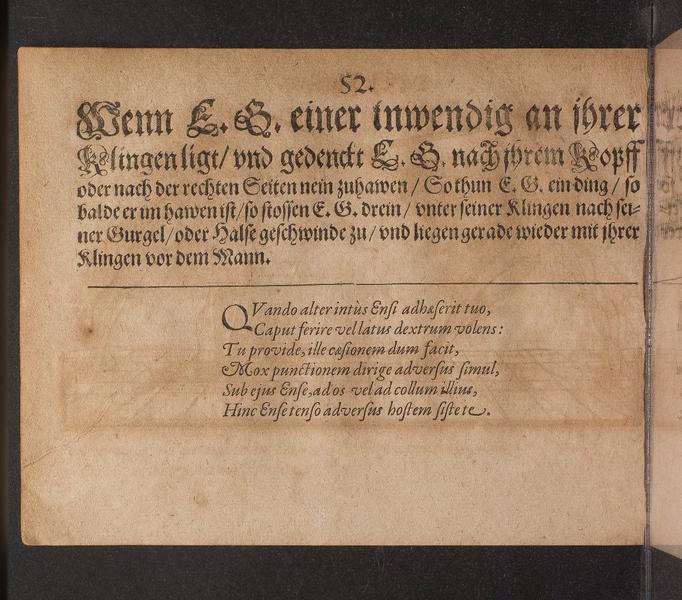 52.
Wenn E. G. einer inwendig an jhrer
Klingen ligt/ vnd gedenckt E. G. nach jhrem Kopff
oder nach der rechten Seiten nein zuhawen / So thun E. G. ein ding / so
balde er im hawen ist/ so stossen E. G. drein / vnter seiner Klingen nach sei-
ner Gurgel/ oder Halse geschwinde zu / vnd liegen gerade wieder mit jhrer
Klingen vor dem Mann.
QVando alter intùs Ensi adhæserit tuo,
Caput ferire vel latus dextrum volens:
Tu provide, ille cæsionem dum facit,
Mox punctionem dirige adversus simul,
Sub ejus Ense, ad os vel ad collum illius,
Hinc Ense tenso adversus hostem sistete.